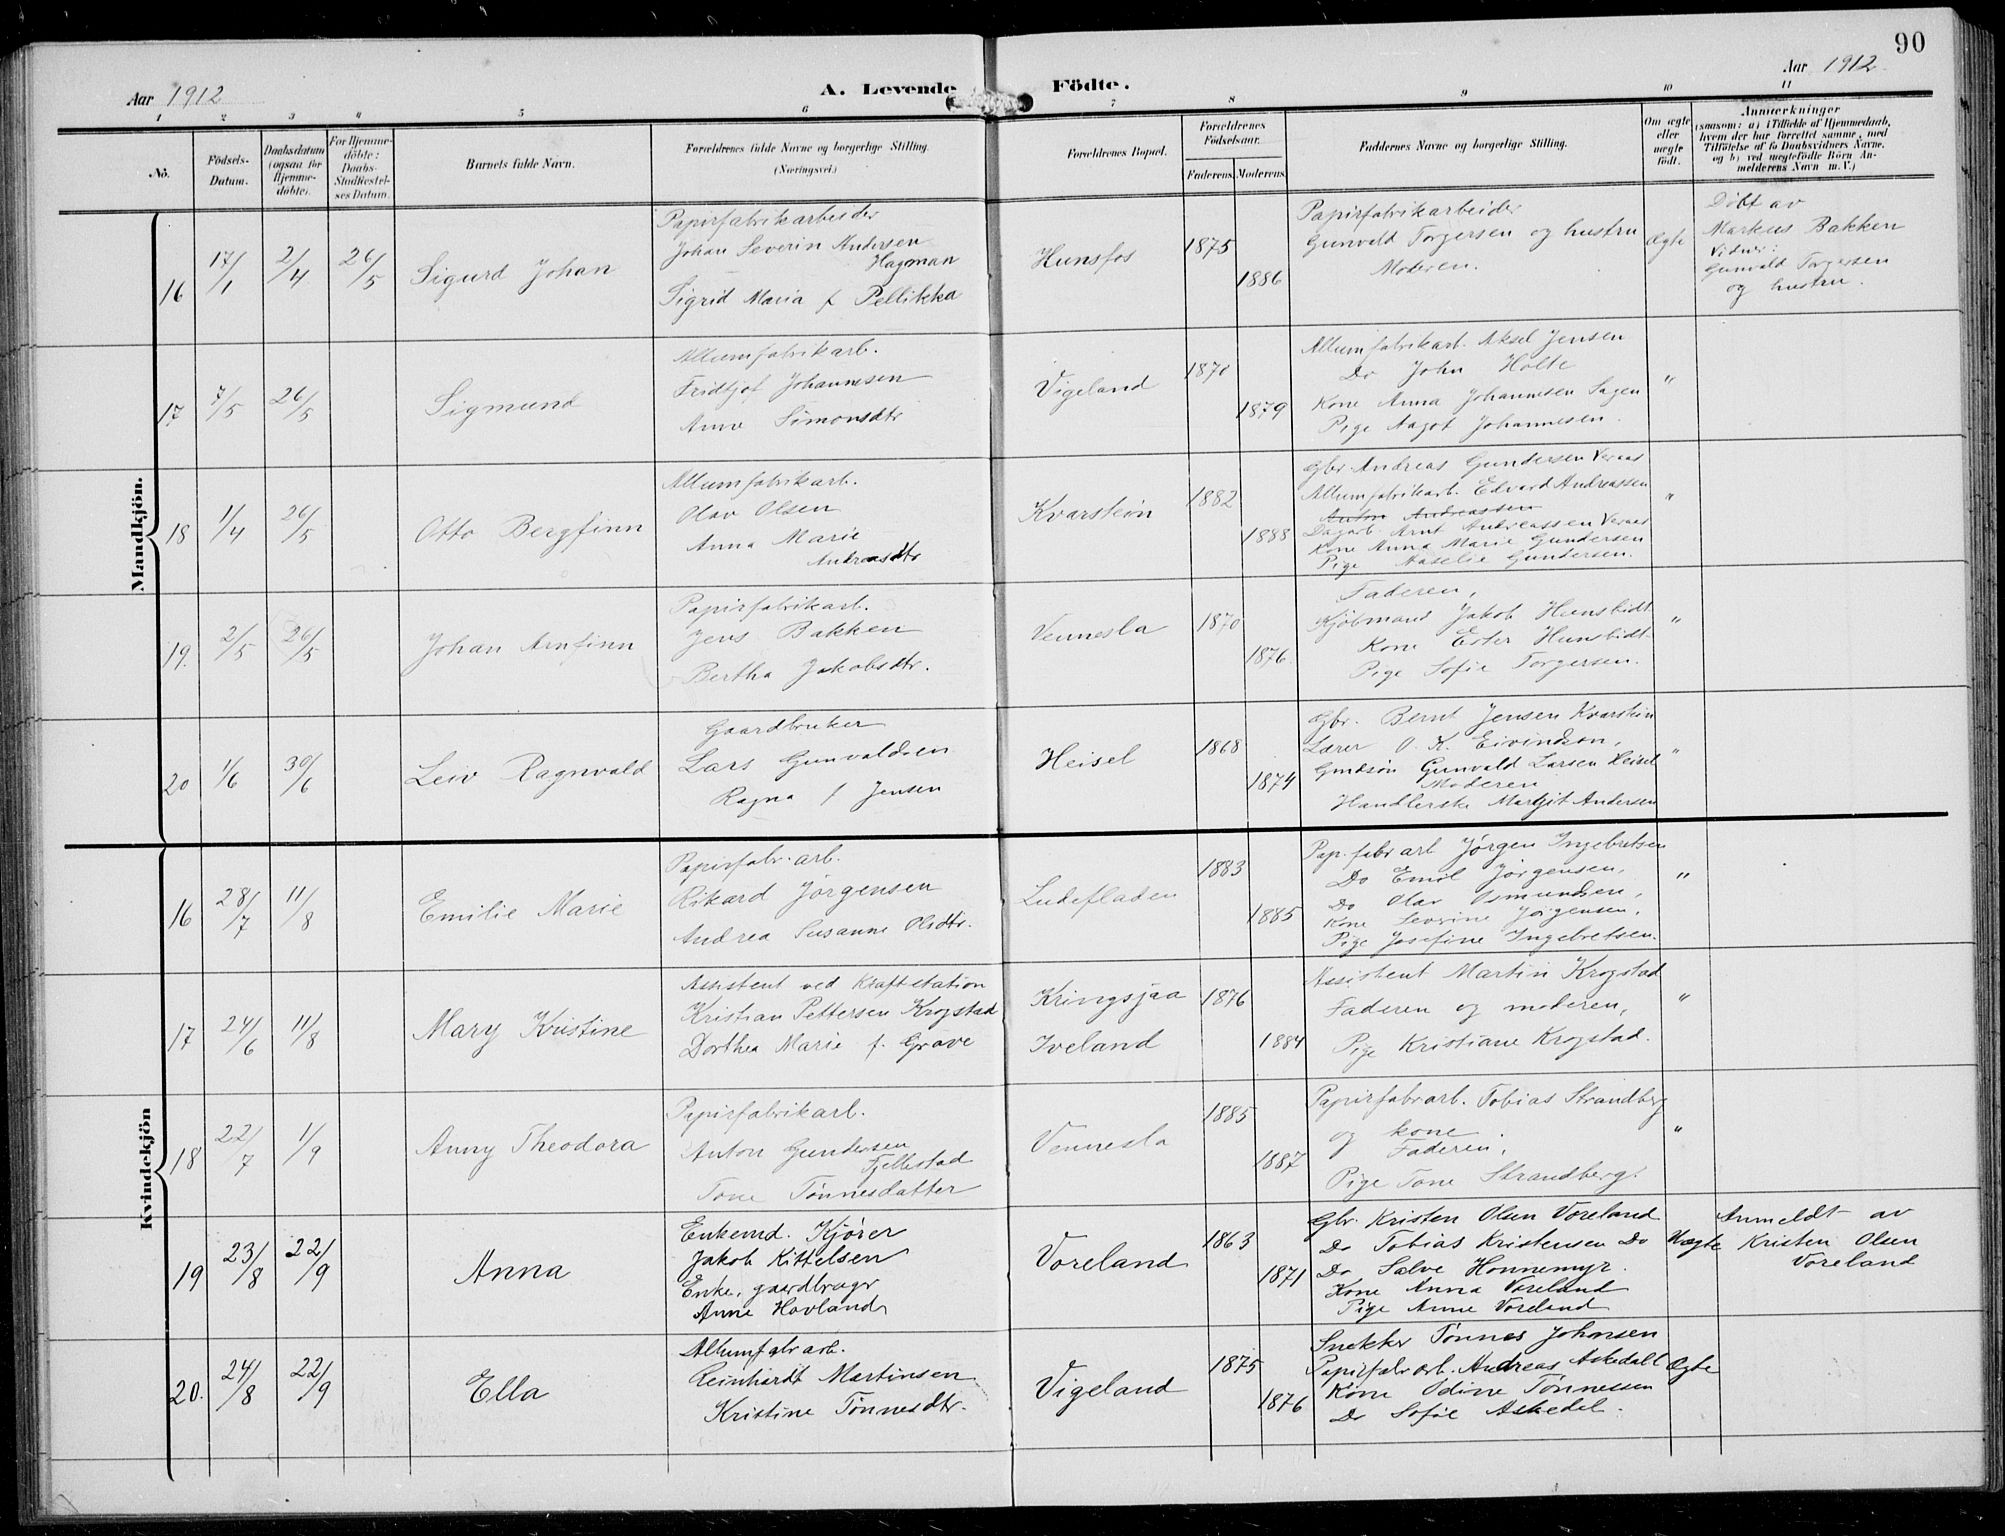 90
Aar 1912
A. Levende Födte.
Aar 1912
1 2 3 4 5 6 7 8 9 10 11
No.
Födsels-Datum.
Daabsdatum (ogsaa for Hjemmedöbte).
For Hjemmedöbte: Daabs-Stadfæstelses Datum.
Barnets fulde Navn.
Forældrenes fulde Navne og borgerlige Stilling.
(Næringsvei.)
Forældrenes Bopæl.
Forældrenes Födselsaar.
Faderens. Moderens.
Faddernes Navne og borgerlige Stilling.
Om ægte eller uægte födt.
Anmærkninger
(saasom: a) i Tilfælde af Hjemmedaab, hvem der har forrettet samme, med Tilföielse af to Daabsvidners Navne, og b) ved uægtefödte Börn Anmelderens Navn m. V.)
Mandkjön.
16 17/1 2/4 26/5 Sigurd Johan
Papirfabrikarbeider
Johan Severin Andersen
Hagman
Sigrid Maria f Pellikka
Hunsfos 1875 1886
Papirfabrikarbeider
Gunvald Torgersen og hustru
Moderen.
Ægte
Døbt av
Markus Bakken
Vidner:
Gunvald Torgersen
og hustru.
17 7/5 26/5 Sigmund
Allumfabrikarb.
Fridtjof Johannesen
Anne Simonsdtr
Vigeland 1870 1879
Allumfabrikarb. Aksel Jensen
Do John Holte
Kone Anna Johannesen Sagen
Pige Aagot Johannesen.
"
18 1/4 26/5 Otto Bergfinn
Allumfabrikarb.
Olav Olsen
Anna Marie
Andreasdtr
Kvarstein 1882 1888
Gbr. Andreas Gundersen Veraas
Allumfabrikarb. Edvard Andreassen
Anton Andreassen
Dagarb. Arnt Andreassen Veraas
Kone Anna Marie Gundersen
Pige Aaselie Gundersen.
"
19. 2/5 26/5 Johan Arnfinn
Papirfabrikarb.
Jens Bakken
Bertha Jakobsdtr.
Vennesla 1870 1876.
Faderen,
Kjøbmand Jakob Hunsbidt
Kone Ester Hunsbidt
Pige Sofie Torgersen.
"
20 1/6 30/6 Leiv Ragnvald
Gaardbruker
Lars Gunvaldsen
Ragna f Jensen
Heisel 1868 1874
Gbr. Bernt Jensen Kvarstein
Lærer O. K. Eivindson,
Gmdsøn Gunvald Larsen Heisel
Moderen
Handlerske Margit Andersen
"
Kvindekjön
16 28/7 11/8 Emilie Marie
Papirfabr. arb.
Rikard Jörgensen
Andrea Susanne Olsdtr.
Ludefladen 1883 1885
Pap. fabr arb Jörgen Ingebretsen
Do Emil Jörgensen,
Do Olav Osmundsen,
Kone Severine Jörgensen,
Pige Josefine Ingebretsen.
"
17 24/6 11/8 Mary Kristine
Assistent ved Kraftstation
Kristian Pettersen Krogstad
Dorthea Marie f. Grave
Kringsjaa
Iveland
1876 1884
Assistent Martin Krogstad
Faderen og moderen,
Pige Kristiane Krogstad.
"
18 22/7 1/9 Anny Theodora
Papirfabrikarb.
Anton Gundersen
Fjellestad
Tone Tönnesdatter
Vennesla 1885 1887
Papirfabrarb. Tobias Strandberg
og kone.
Faderen,
Pige Tone Strandberg.
"
19 23/8 22/9 Anna
Enkemd. Kjører
Jakob Kittelsen
Enke, gaardbruger
Anne Hovland
Voreland 1863 1871
Gbr. Kristen Olsen Voreland
Do Tobias Kristensen Do
Do Salve Honnemyr.
Kone Anna Voreland
Pige Anne Voreland
Uægte
Anmeldt av
Kristen Olsen
Voreland
20. 24/8 22/9 Ella
Allumfabr arb.
Reinhardt Martinsen
Kristine Tönnesdtr.
Vigeland 1875 1876
Snekker Tönnes Johansen
Papirfabr arb. Andreas Askedall
Kone Odine Tönnessen
Do Sofie Askedal.
Ægte